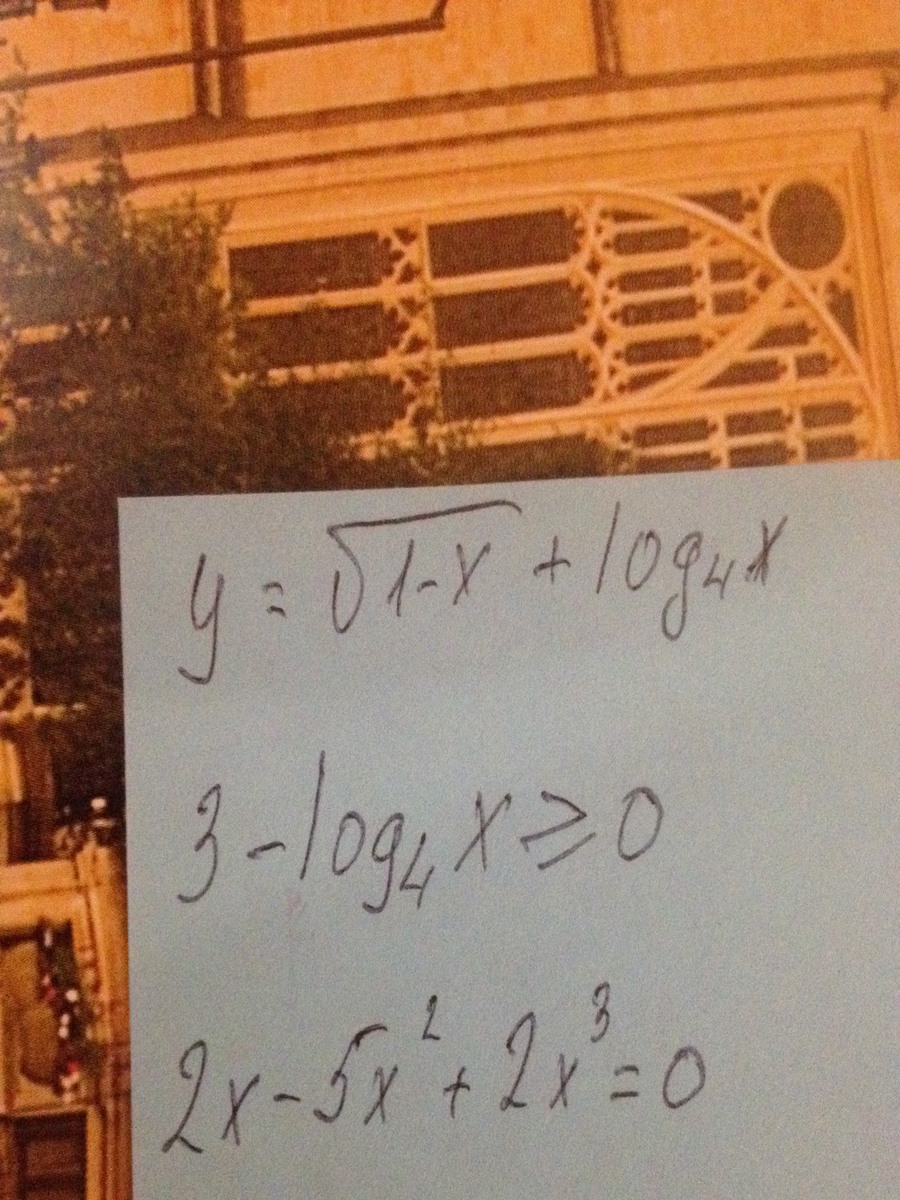 y = √1-x + log₄x
3 - log₄ x ≥ 0
2x - 5x² + 2x³ = 0